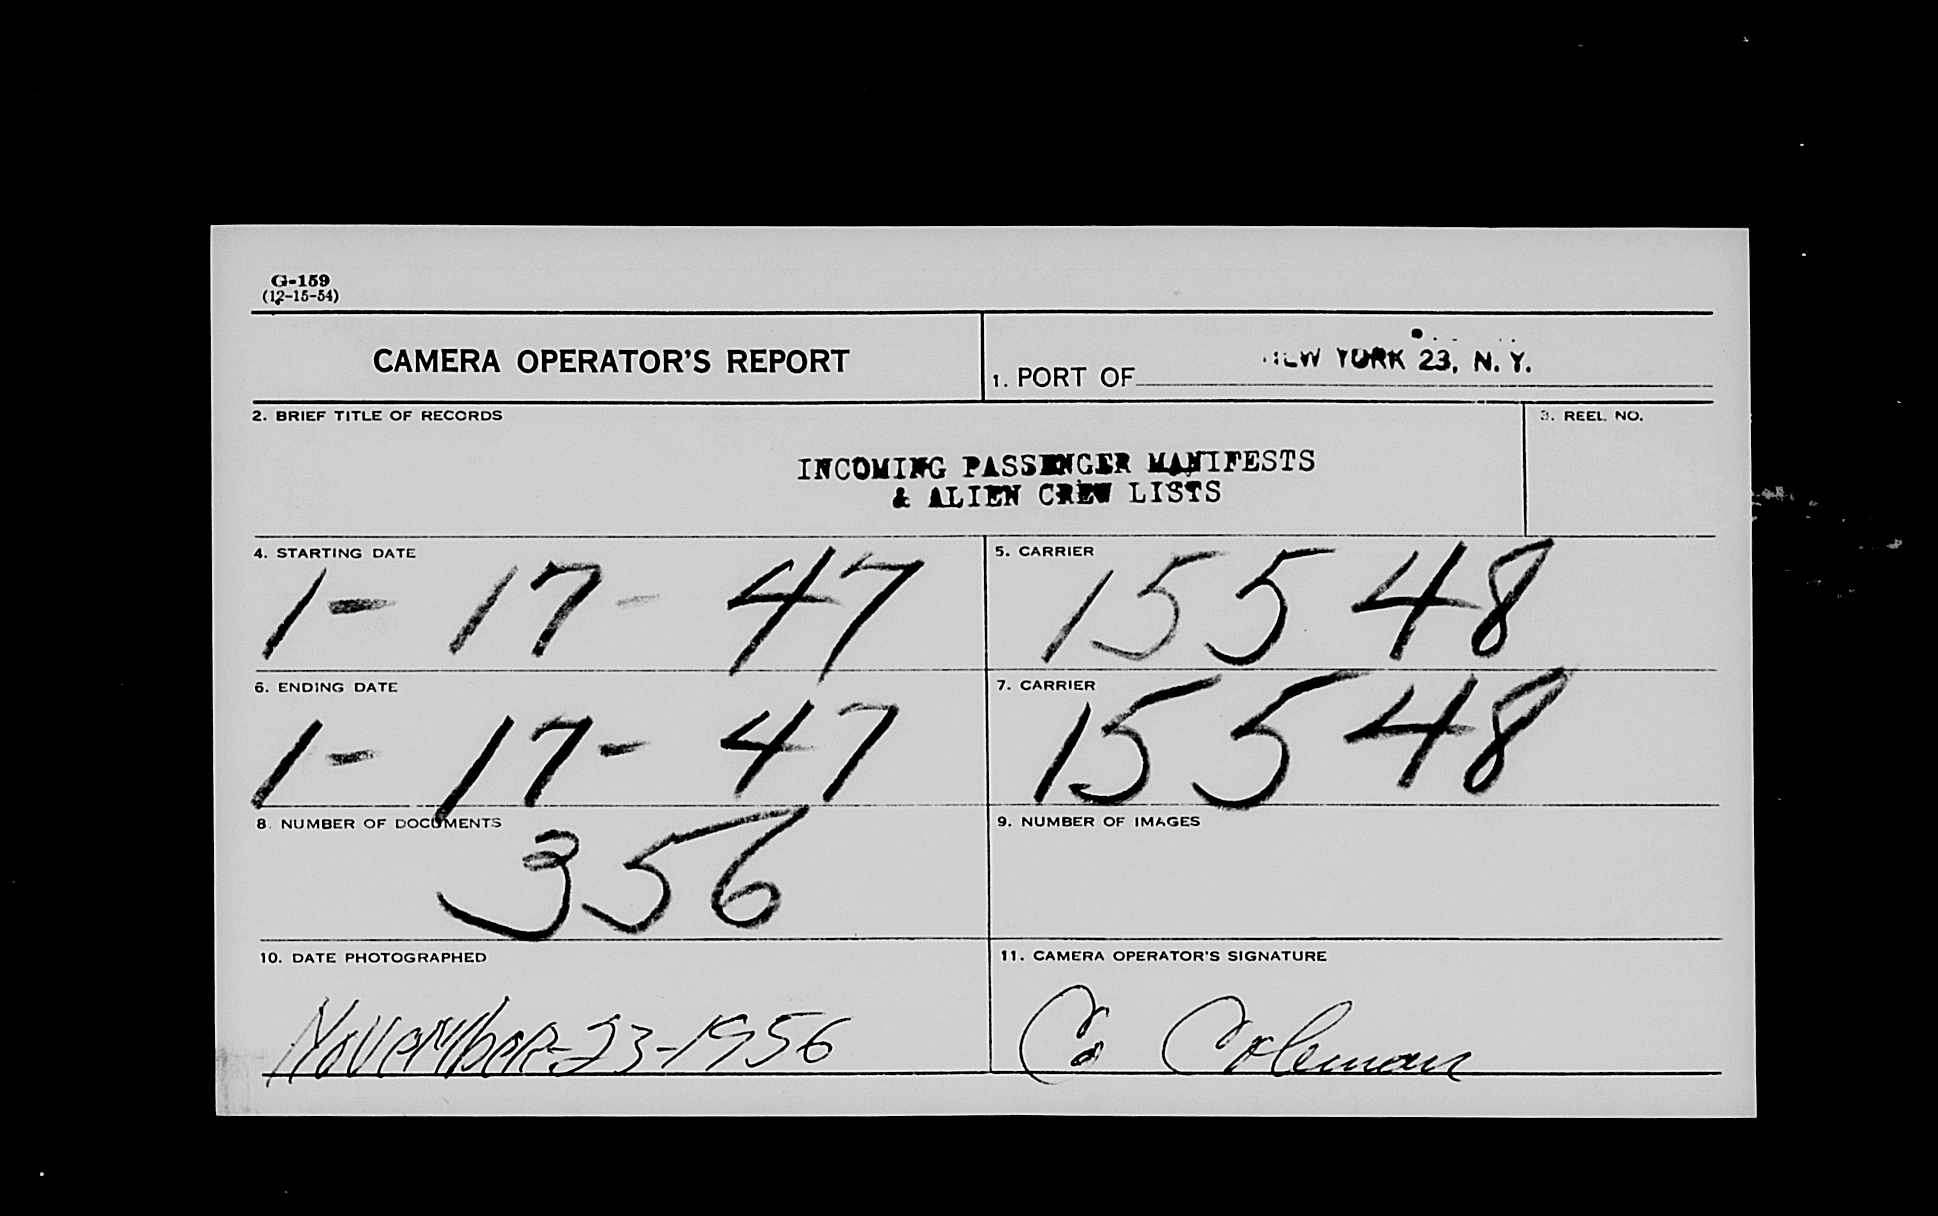 G-159
(12-15-54)
CAMERA OPERATOR'S REPORT
1. PORT OF NEW YORK 23, N. Y.
2. BRIEF TITLE OF RECORDS
3. REEL NO.
INCOMING PASSENGER MANIFESTS
& ALIEN CREW LISTS
4. STARTING DATE
1-17-47
5. CARRIER
15548
6. ENDING DATE
1-17-47
7. CARRIER
15548
8. NUMBER OF DOCUMENTS
356
9. NUMBER OF IMAGES
10. DATE PHOTOGRAPHED
November-23-1956
11. CAMERA OPERATOR'S SIGNATURE
Coleman